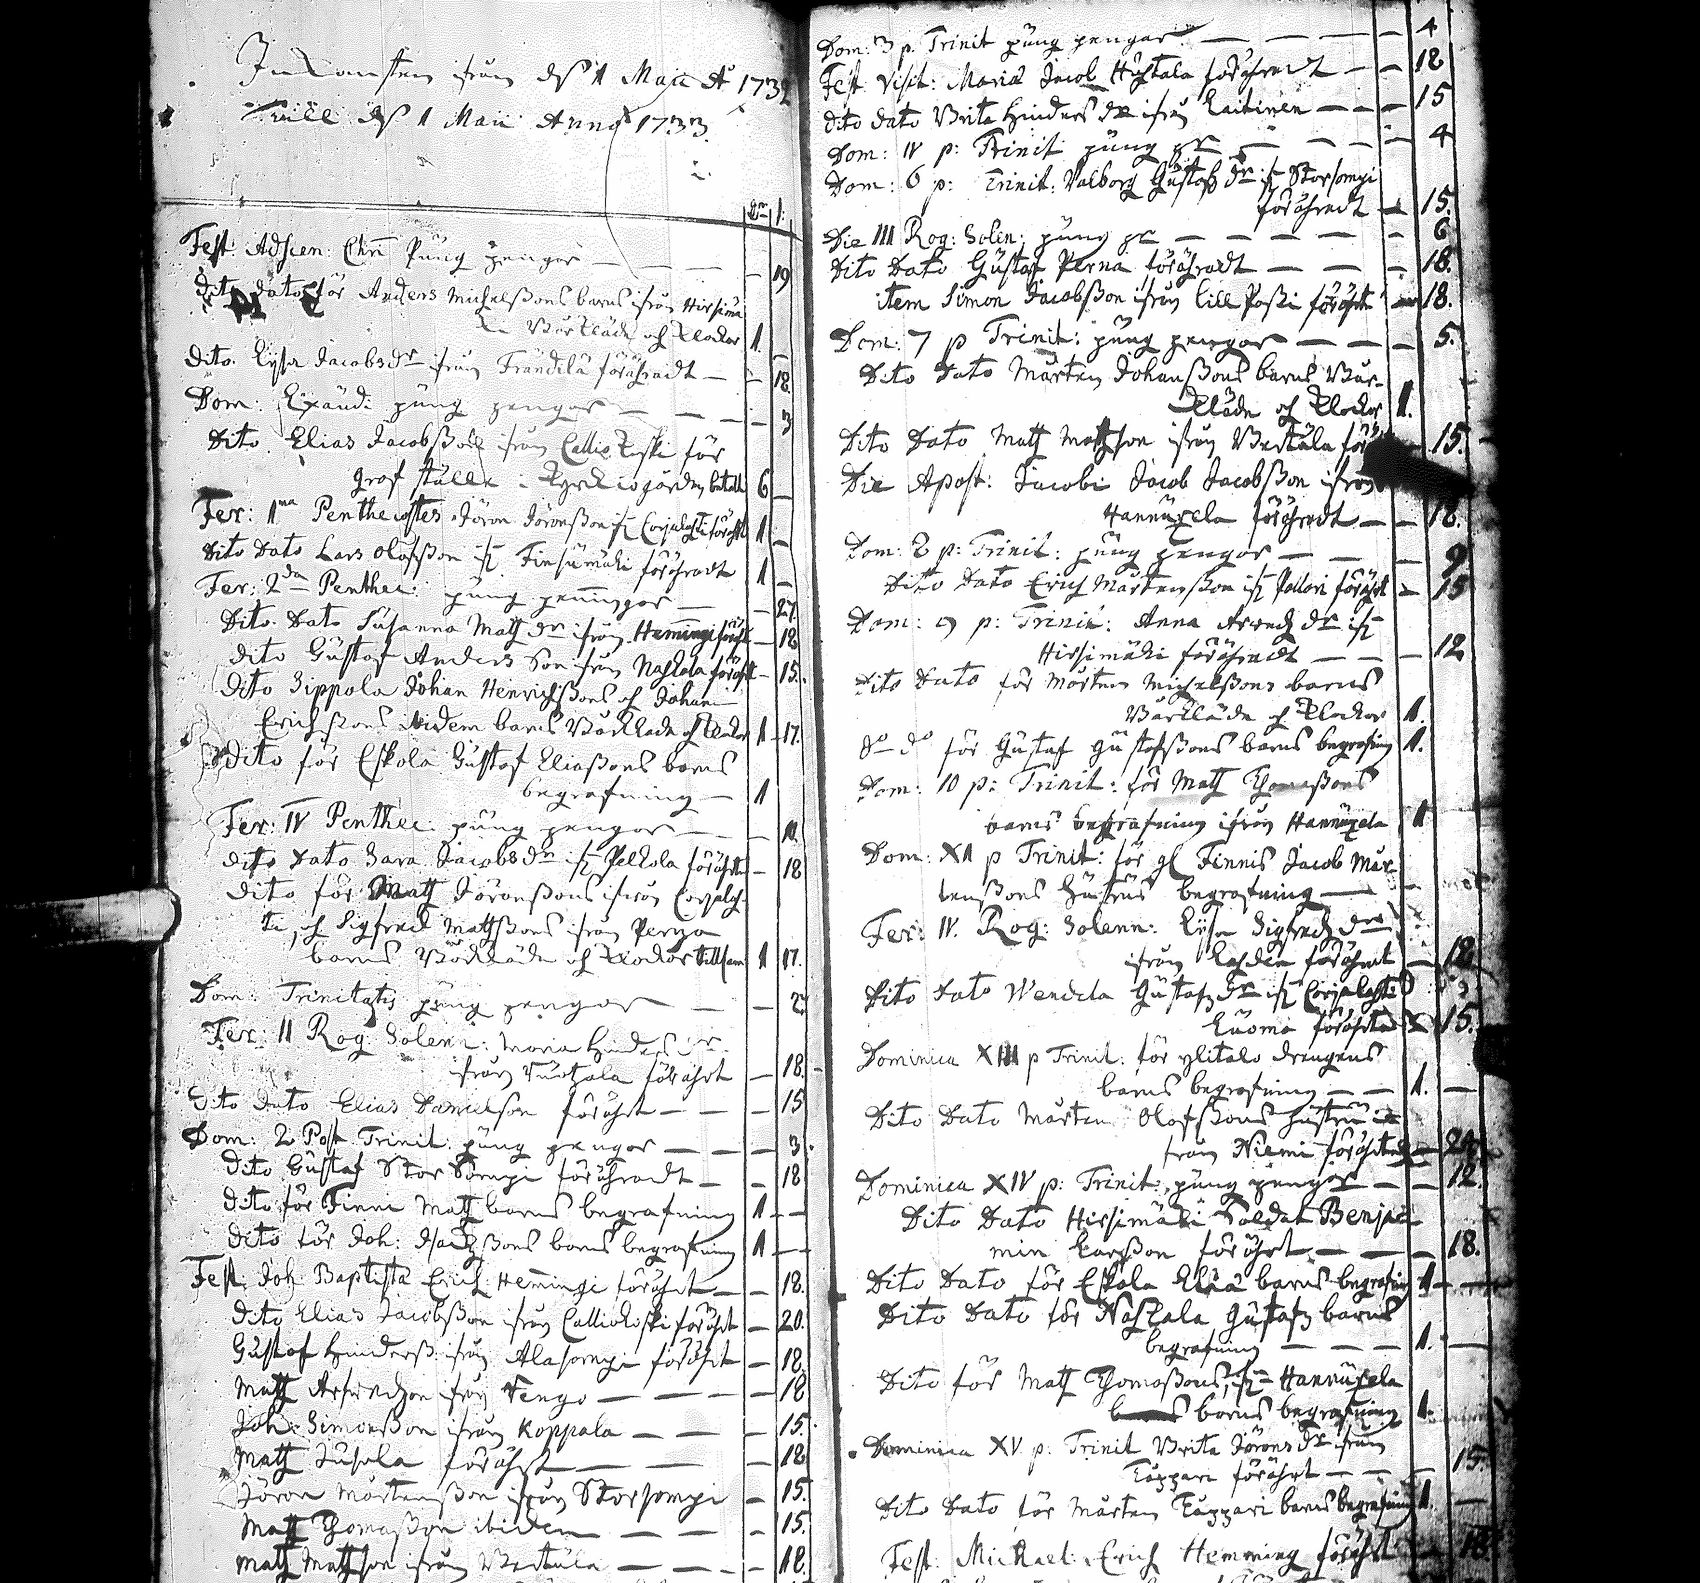 Inkomsten ifrån d 1 Maji A 1732
Till d 1 Maii Anno 1733
Fest: Adscen: Chri Pung pengar — — — 19
Dito Dato för Anders Michelssons barns ifrån Hirsimä
ki Bårkläde och Klockor 1 —
Dito. Lysa Jacobsdr ifrån Frändilä förähradt — 18
Dom: Exaudi pung pengar — — — 3
Dito Elias Jacobsson ifrån Calliokoski för
graf ställe i Kyrkiogården betalt 6 —
Fer: 1ma Penthecostes Jöran Jöransson if Corjalahti förährt 1 —
Dito Dato Lars Olofsson if Finsiimäki förähradt 1 —
Fer: 2da Penthec: pung penningar — — 27
Dito Dato Susanna Math dr ifrån Hemmingi förährt — 18
Dito Gustaf Anders Son ifrån Naskala förährt — 15.
Dito Sippola Johan Henrichssons och Johan
Erichssons ibidem barns Bårkläde och Klockor 1 17.
Dito för Eskola Gustaf Eliassons barns
begrafning — 1
Fer: IV Penthec: pung pengar — — 11.
Dito Dato Sara Jacobs dr if Pelkola förährt — 18
Dito för Math Jöranssons ifrån Corjalah-
ti, och Sigfred Mathssons ifrån Perna
barns Bårkläde och Klockor tillsam 1 17.
Dom: Trinitatis pung pengar — — 2
Fer: II Rog: Solenn: Maria Hinders dr
ifrån förährt — 18.
Dito Dato Elias Danielson förährt — — 15
Dom: 2 Post Trinit: pung pengar — — 3.
Dito Gustaf Stor Sompi förähradt — — 18
Dito för Finni Math barns begrafning 1 —
Dito för Joh: Isachssons barns begrafning 1 —
Fest: Joh Baptista Erich Hemmingi förährt — — 18.
Dito Elias Jacobsson ifrån Calliokoski förährt — 20.
Gustaf Hinderss: ifrån Alasompi förährt — 18.
Math Arfwedson ifrån Tengo — — — 18
Joh: Simonsson ifrån Koppala — — 15.
Math Jusola förährt — — — 18
Jöran Mårtensson ifrån Storsompi — 15.
Math Thomasson ibidem — — — 15.
Math Mathsson ifrån Bertula — — 18.
Dom: 3 p. Trinit pung pengar — — — 4
Fest: Visit: Mariæ Jacob Huhtala förähradt — — 18
Dito dato Brita Hinders dr ifrån Laitinen — — — 15
Dom: IV p: Trinit pung pr — — — 4
Dom: 6 p: Trinit: Valborg Gustafs dr if Storsompi
förähradt — 15.
Die III Rog: Solen: pung pr — — — — 6
Dito Dato Gustaf Perna förähradt — — — 18.
item Simon Jacobsson ifrån lill Paski förährt — 18.
Dom: 7 p Trinit: pung pengar — — — 5.
Dito Dato Mårten Johanssons barns Bår-
kläde och Klockor 1.
Dito Dato Math Mathson ifrån Bertula för 15.
Die Apost: Jacobi Jacob Jacobsson ifrån
Hannuxela förährt — — 18.
Dom: 8 p: Trinit: pung pengar — — — 9
Dito Dato Erich Mårtensson if Pallari förährt — 15
Dom: 9 p: Trinit: Anna Arwedz dr if
Hirsimäki förähradt — — — 12
Dito Dato för Mårten Michelssons barns
Bårkläde och Klockor 1.
do do för Gustaf Gustafssons barns begrafning 1.
Dom: 10 p: Trinit: för Math Thomassons
barns begrafning ifrån Hannuxela 1
Dom: XI p Trinit: för gl Finnis Jacob Mår-
tenssons hustrus begrafning —
Fer: IV. Rog: Solenn: Lysa Sigfredz dr
ifrån förährt — 18.
Dito Dato Wendela Gustafz dr if Corjalahti
Luoma förährt — 15.
Dominica XIII p Trinit: för ylitalo drengens
barns begrafning — — 1. —
Dito Dato Mårten Olofssons hustru i
från Niemi förährt — 24
Dominica XIV p: Trinit: pung pengar — — 12.
Dito Dato Hirsimäki Soldat Benja
min Larsson förährt — — 18.
Dito Dato för Eskola Eliæ barns begrafning 1 —
Dito Dato för Naskala Gustafz barns
begrafning — — — 1. —
Dito för Math Thomassons, if Hannuxela
barns begrafning 1.
Dominica XV p: Trinit Brita Jörans dr ifrån
Tuppari förährt — — — 15.
Dito Dato för Mårten Tuppari barns begrafning 1. —
Fest: Michael: Erich Hemming förährt — 18